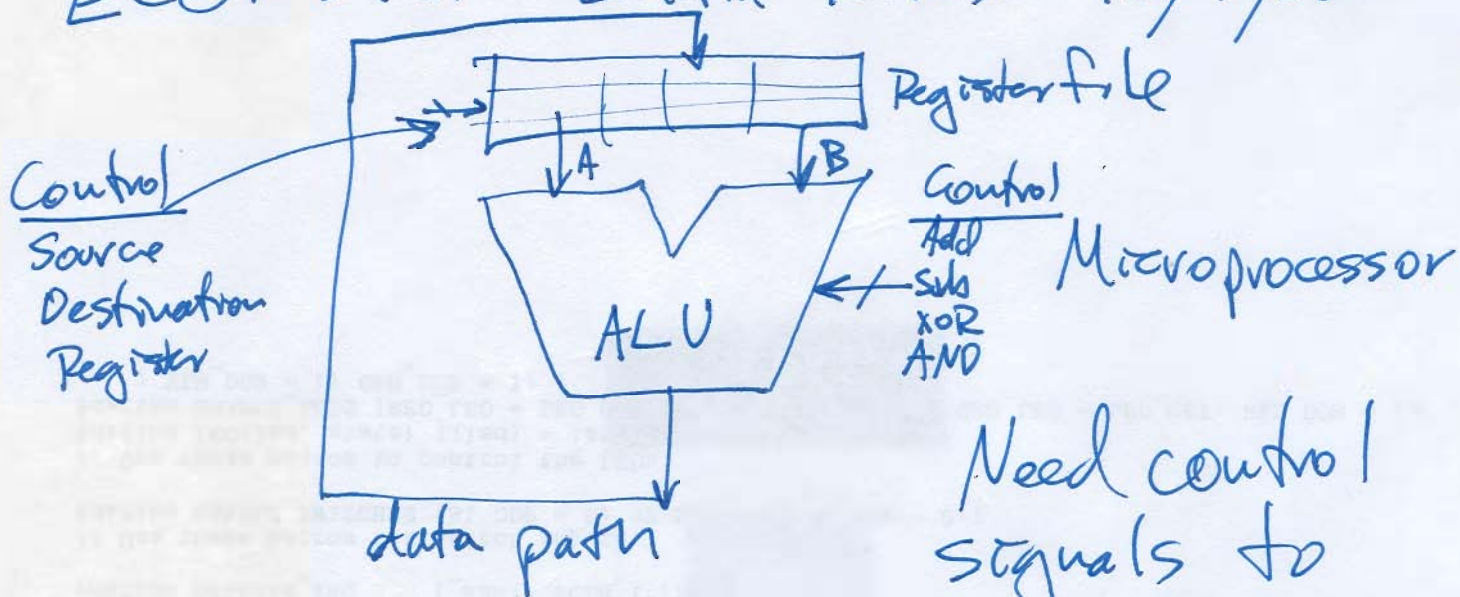 Register file
A
B
Control
Source
Destination
Register
Control
Add
Sub
XOR
AND
Microprocessor
ALU
data path
Need control
signals to